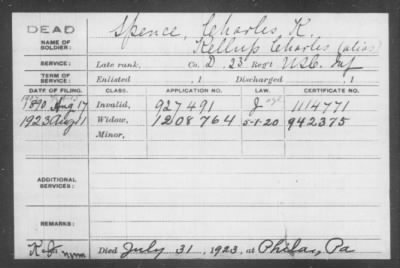 DEAD
Spence, Charles K.
NAME OF SOLDIER:
Kellup Charles (alias)
SERVICE: Late rank, Co. D. 23 Reg't U.S.C. Inf
TERM OF SERVICE: Enlisted , 1 Discharged , 1
DATE OF FILING. CLASS. APPLICATION NO. LAW. CERTIFICATE NO.
1890 Aug 17 Invalid, 927491 1114771
1923 Aug 1 Widow, 1208764 5-1-20 942375
Minor,
ADDITIONAL SERVICES:
REMARKS:
Died July 31, 1923, at Phila, Pa